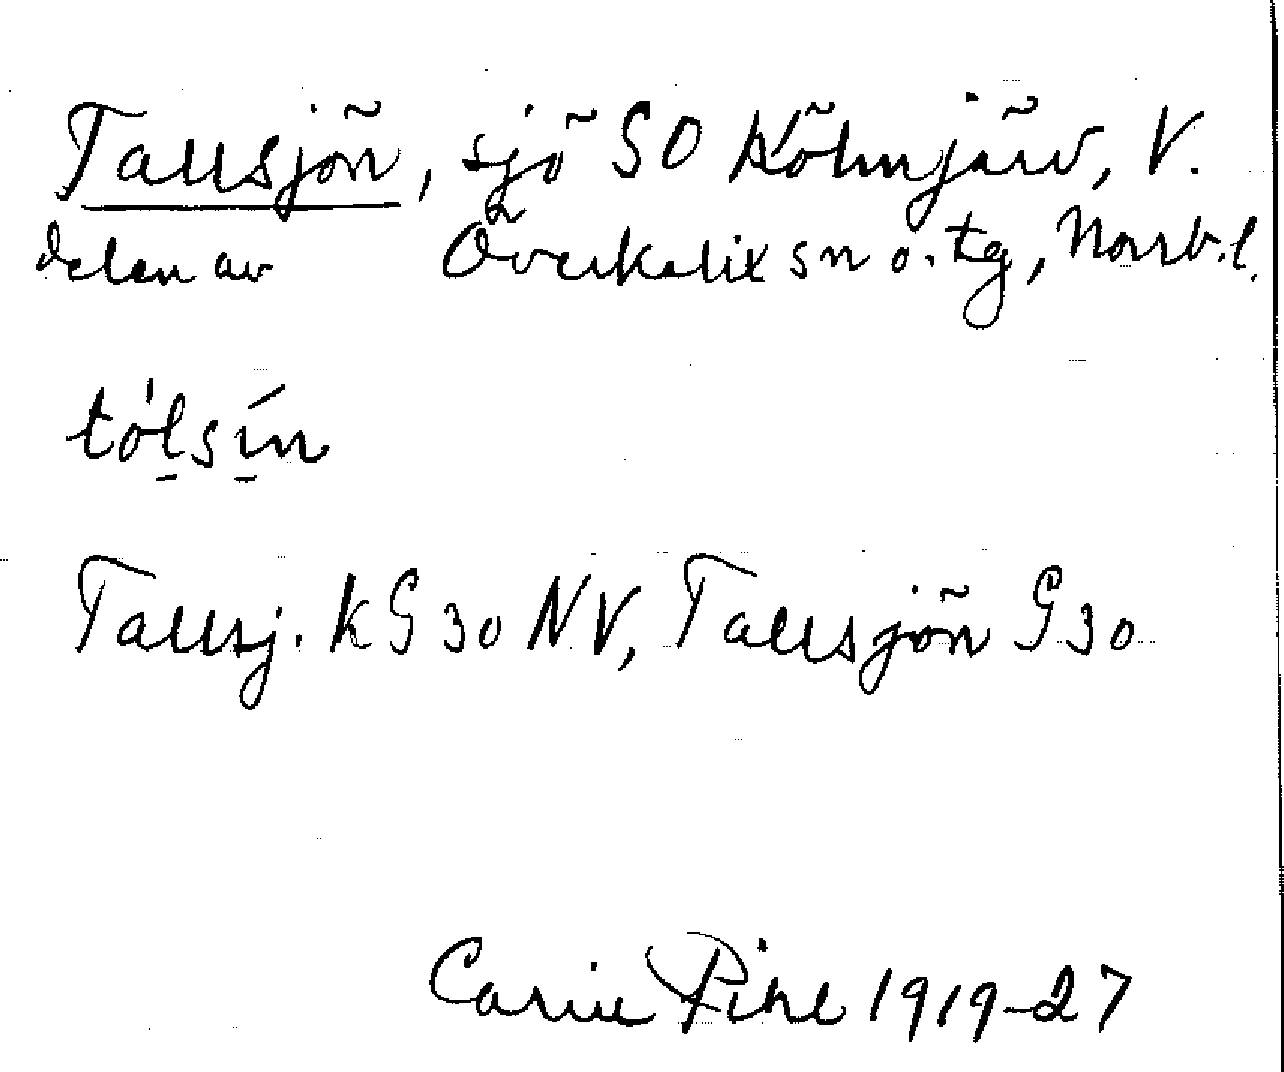 Tallsjön, sjö SO Kölmjärv, V.
delen av Överkalix sn o. tg, Norrb.l.
tó̍ḻsı̱́n
Tallsj. KG 30 NV, Tallsjön G 30
Carin Pihl 1919-27